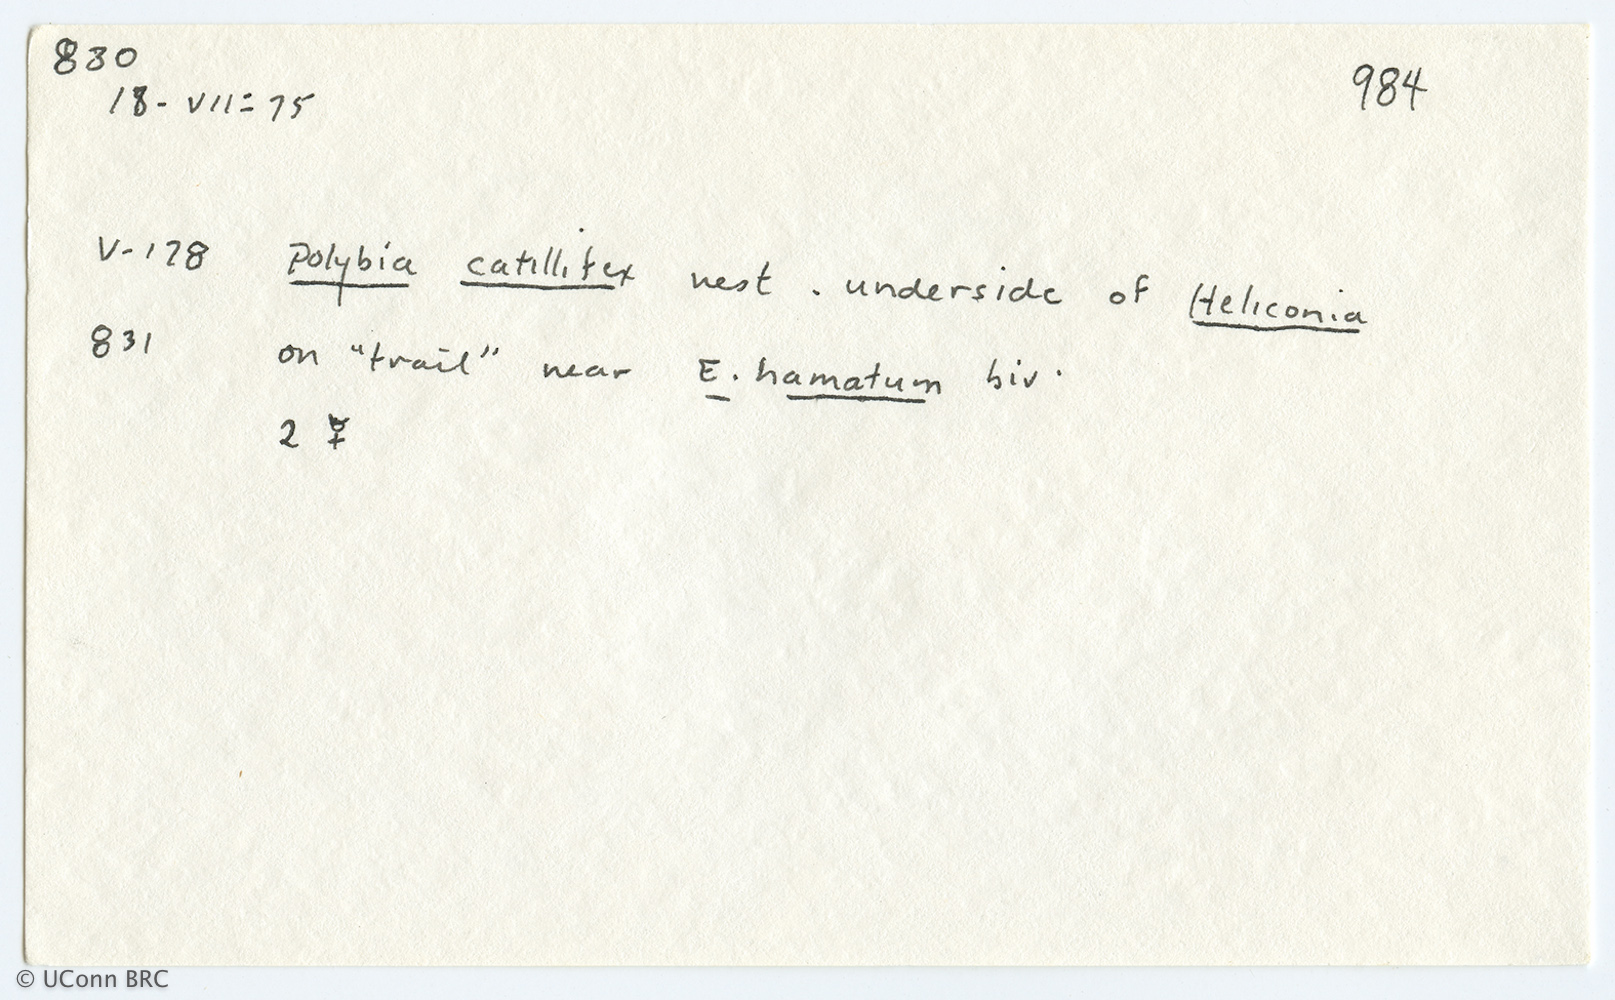 830
984
18-VII-75
V-178 Polybia catillifex nest. underside of Heliconia
831 on "trail" near E. hamatum biv.
2 ☿
© UConn BRC